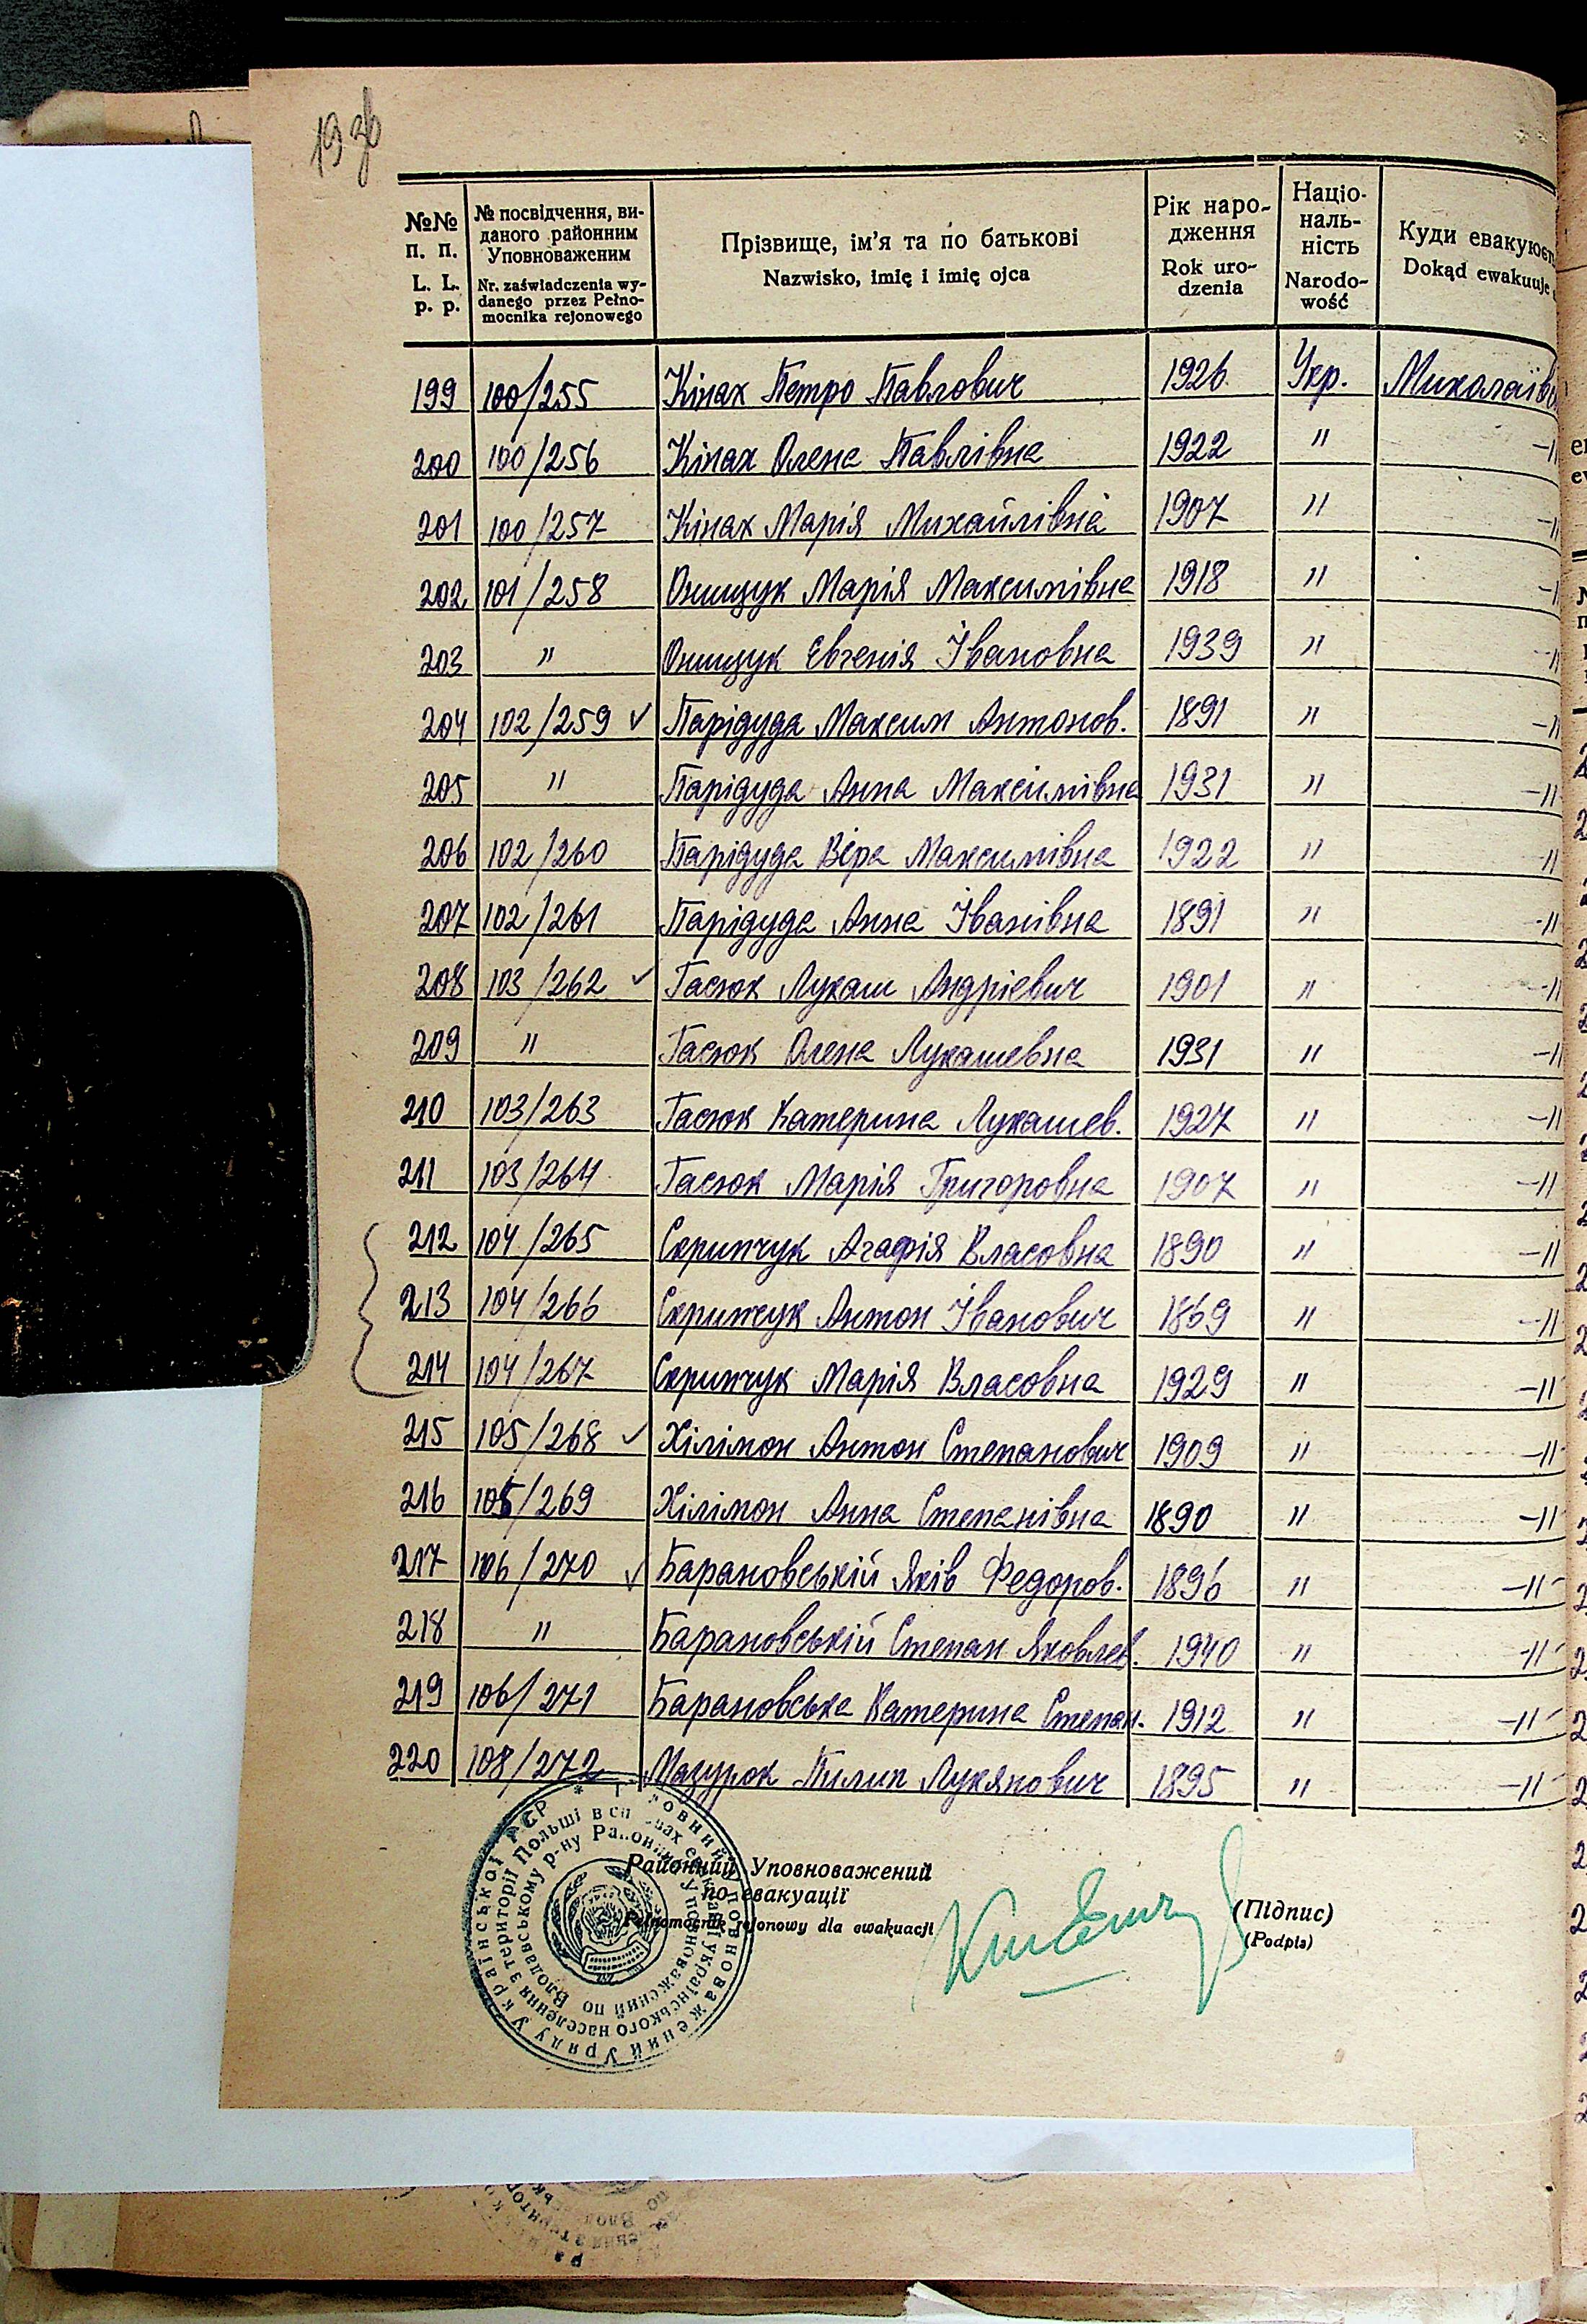 19 зв
№№ п. п.
L. L. p. p.
№ посвідчення, ви-
даного районним
Уповноваженим
Nr. zaświadczenia wy-
danego przez Pełno-
mocnika rejonowego
Прізвище, ім'я та по батькові
Nazwisko, imię i imię ojca
Рік наро-
дження
Rok uro-
dzenia
Націо-
наль-
ність
Narodo-
wość
Куди евакуюєт
Dokąd ewakuuje
199 100/255 Кінах Петро Павлович 1926. Укр. Миколаївс
200 100/256 Кінах Олена Павлівна 1922 " -"
201 100/257 Кінах Марія Михайлівна 1907 " -"
202 101/258 Онищук Марія Максимівна 1918 " -"
203 " Онищук Евгенія Івановна 1939 " -"
204 102/259 ✓ Парідуда Максим Антонов. 1891 " -"
205 " Парідуда Анна Максимівна 1931 " -"
206 102/260 Парідуда Віра Максимівна 1922 " -"
207 102/261 Парідуда Анна Іванівна 1891 " -"
208 103/262 ✓ Гасюк Лукаш Андріевич 1901 " -"
209 " Гасюк Олена Лукашевна 1931 " -"
210 103/263 Гасюк Катерина Лукашев. 1927 " -"
211 103/264 Гасюк Марія Григоровна 1907 " -"
212 104/265 Скрипчук Агафія Власовна 1890 " -"
213 104/266 Скрипчук Антон Іванович 1869 " -"
214 104/267 Скрипчук Марія Власовна 1929 " -"
215 105/268 ✓ Хілімон Антон Степанович 1909 " -"
216 105/269 Хілімон Анна Степанівна 1890 " -"
217 106/270 ✓ Барановській Яків Федоров. 1896 " -"-
218 " Барановській Степан Яковлев. 1940 " -"-
219 106/271 Барановська Катерина Степан. 1912 " -"-
220 108/272 Мазурок Пилип Лукянович 1895 " -"-
Районний Уповноважений
по евакуації
Pełnomocnik rejonowy dla ewakuacji
(Підпис)
(Podpis)
Головний Уповноважений Уряду Української РСР
в справах евакуації українського населення з території Польші
Районний Уповноважений по Влодавському р-ну